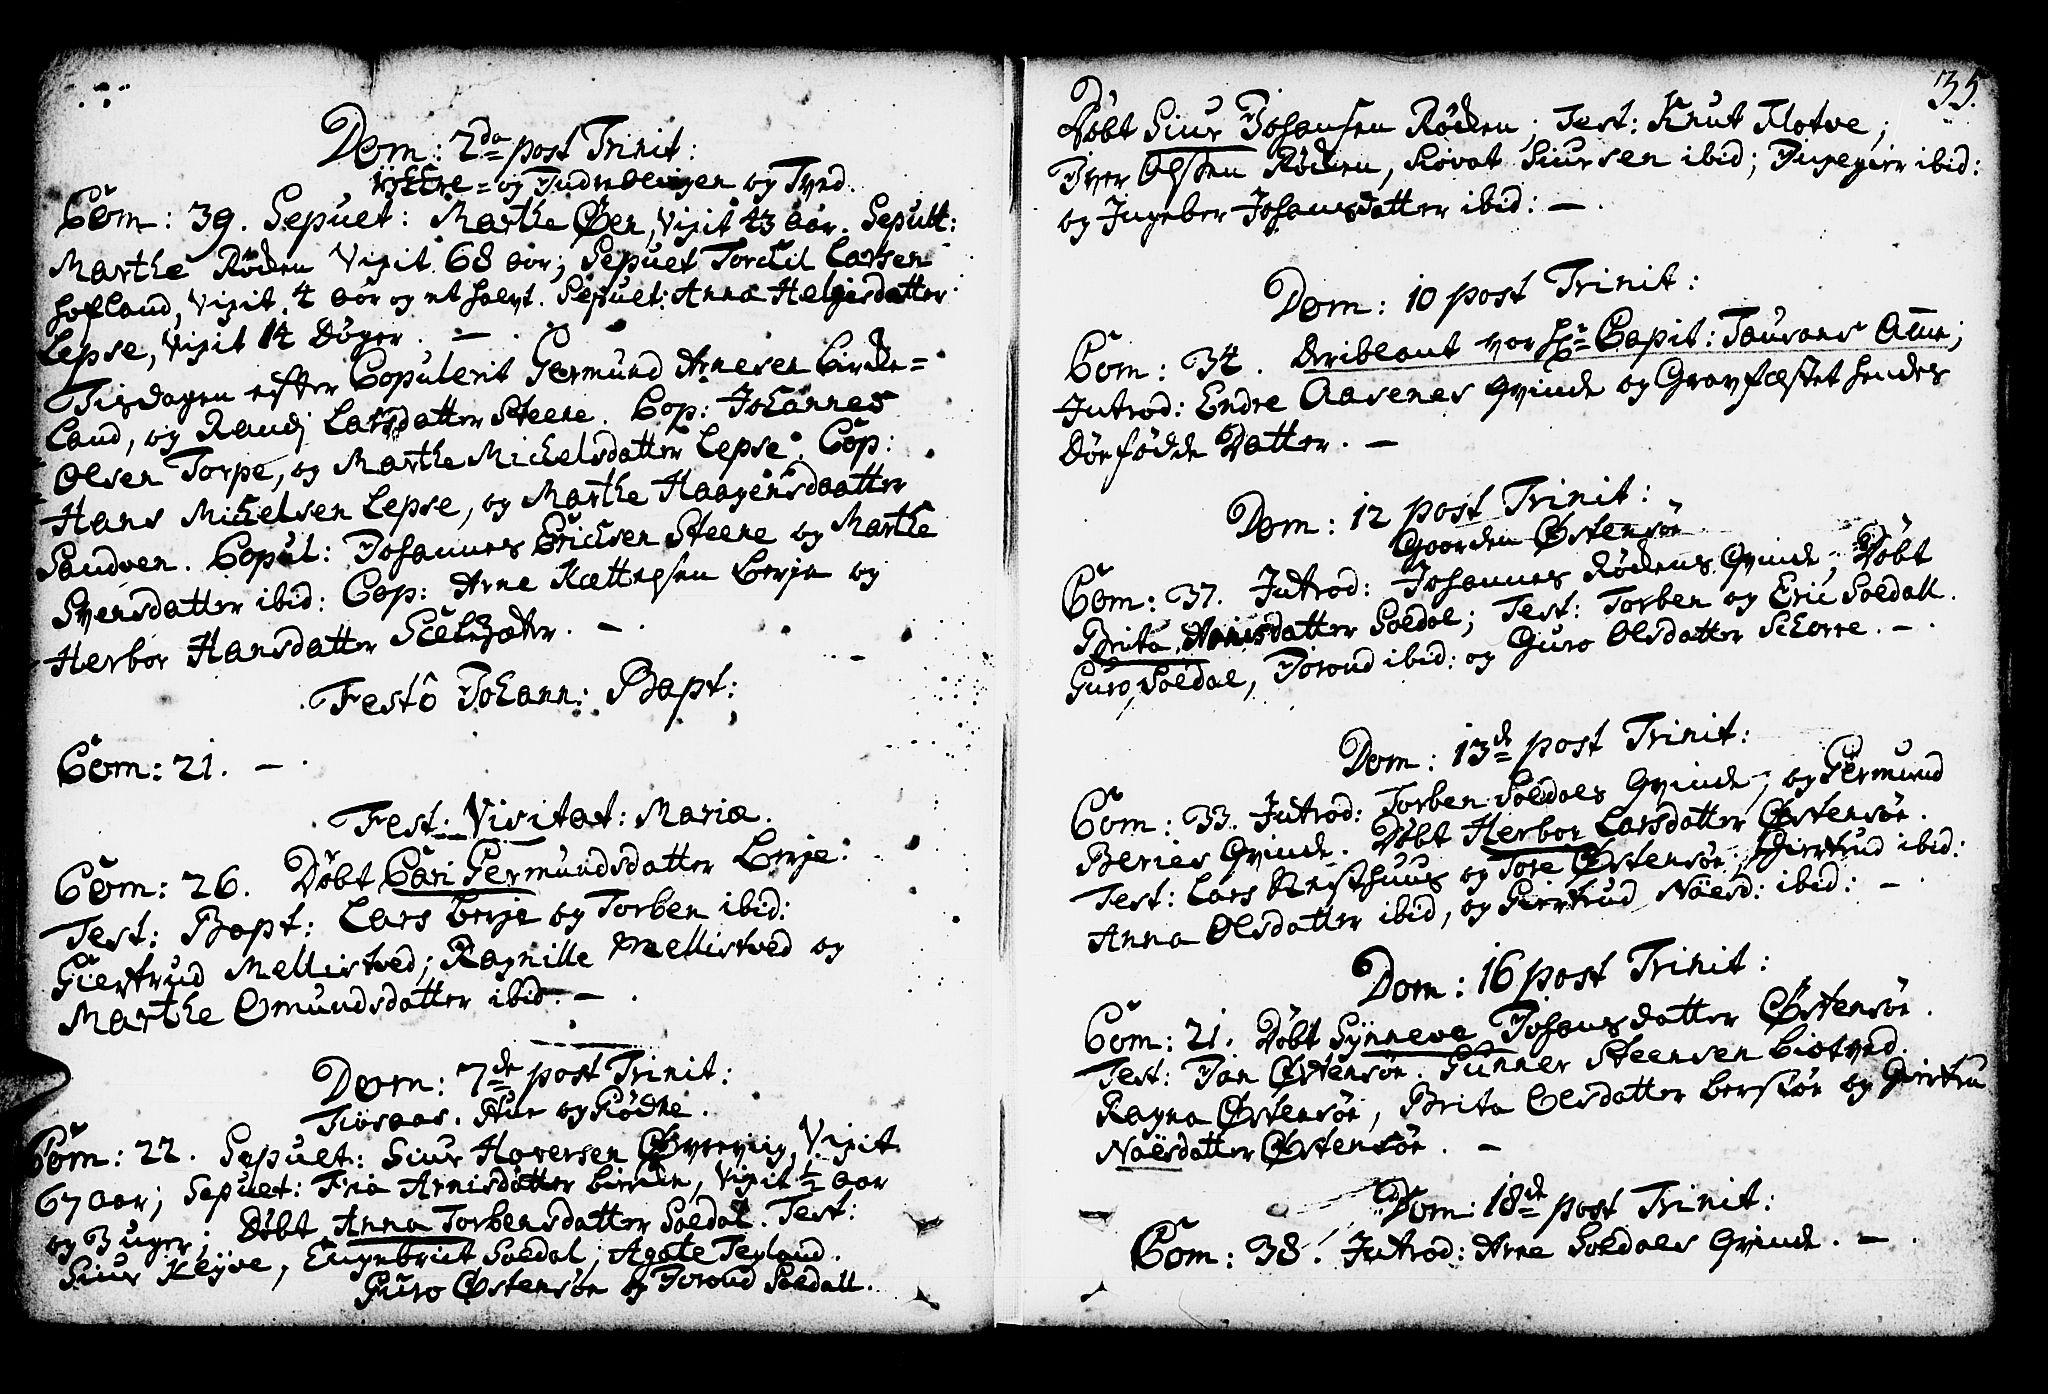 Dom: 2da post Trinit:
og Indre Ølviigen og Tved.
Com: 39. Sepult: Marthe Øen, Vixit 43 aar. Sepult:
Marthe Røcken Vixit 68 aar; Sepult Torckil Larsen
Hofland, Vixit 4 aar og et halvt. Sepult: Anna Helgesdatter
Lepse, Vixit 14 Døger. —
Tisdagen efter Copulerit Germund Arnesen Bircke=
land, og Randj Larsdatter Steene. Cop: Johannes
Olsen Torpe, og Marthe Michelsdatter Lepse. Cop:
Hans Michelsen Lepse, og Marthe Haagensdaatter
Sandven. Copul: Johannes Erichsen Steene og Marthe
Svensdatter ibid: Cop: Arne Kættelsen Berje og
Herbor Hansdatter Sælsæter. —
Festô Johann: Bapt:
Com: 21. —
Fest: Visitat: Mariæ.
Com: 26. Døbt Cari Germundsdatter Berje:
Test: Bapt: Lars Berje og Torben ibid:
Giertrud Mellistved; Ragnille Mellistved og
Marthe Omundsdatter ibid. —
Dom: 7de post Trinit:
Tiøsaas. Aue og Giødne.
Com: 22. Sepult: Siur Haversen Øvreviig, Vixit
67 aar; Sepult: Fria Arnisdatter Bircken, Vixit ½ aar
og 3 uger; Døbt Anna Torbensdatter Soldal. Test:
Siur Kløve, Engebricht Soldal; Agate Teyland.
Guro Østensøe og Joroud Soldall.
35.
Døbt Siur Johansen Røcken; Test: Knut Flotve;
Iver Olssen Røcken, Siovat Siursen ibid; Ingegier ibid:
og Ingeber Johansdatter ibid: —
Dom: 10 post Trinit:
Com: 34. Deriblant vor Hr Capit: Taurans Amme;
Introd: Endre Aasenes Qvinde og Gravfæstet hendes
Dørfødde Datter. —
Dom: 12 post Trinit:
Gaarden Østensøe
Com: 37. Introd: Johannes Røckens Qvinde; Døbt
Brita Arnisdatter Soldal; Test: Torben og Eric Soldall.
Guro Soldal, Joroud ibid: og Guro Olsdatter Schorre. —
Dom: 13de post Trinit:
Com: 33. Introd: Torben Soldals Qvinde, og Germund
Beries Qvinde. Døbt Herbor Larsdatter Østensøe.
Test: Lars Næsthuus og Tore Østensøe; Giertrud ibid:
Anna Olsdatter ibid, og Giertrud Noësd: ibid: —
Dom: 16 post Trinit:
Com: 21. Døbt Synneve Johansdatter Østensøe.
Test: Jan Østensøe. Gunner Steensen Biotved.
Ragna Østensøe, Brita Olsdatter Berskøe og Giertru
Noësdatter Østensøe. —
Dom: 18de post Trinit:
Com: 38. Introd: Arne Soldals Qvinde. —